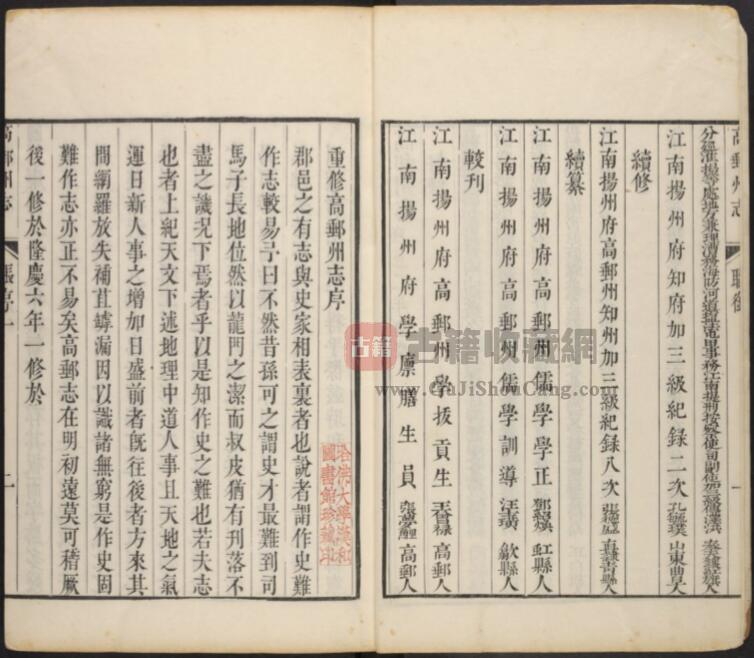 高郵州志
職銜
一
分巡淮揚等處地方兼理漕務海防河道鹽法屯田事務江南提刑按察使司副使加三級
江南揚州府知府加三級紀錄二次 孔 山東曲阜人
續修
江南揚州府高郵州知州加三級紀錄八次 張德盛 直隸青縣人
續纂
江南揚州府高郵州儒學學正 鄧 虹縣人
江南揚州府高郵州儒學訓導 汪 歙縣人
較刊
江南揚州府高郵州學拔貢生 王曾祿 高郵人
江南揚州府學廩膳生員 張 高郵人
重修高郵州志序
郡邑之有志與史家相表裏者也說者謂作史難
作志較易予曰不然昔孫可之謂史才最難到司
馬子長地位然以龍門之潔而叔皮猶有刋落不
盡之譏况下焉者乎以是知作史之難也若夫志
也者上紀天文下述地理中道人事且天地之氣
運日新人事之增加日盛前者旣往後者方來其
間網羅放失補苴罅漏因以識諸無窮是作史固
難作志亦正不易矣高郵志在明初遠莫可稽厥
後一修於隆慶六年一修於
高郵州志
張序一
一
哈佛大學漢和
圖書館珍藏印
古籍
古籍收藏網
www.GuJiShouCang.com